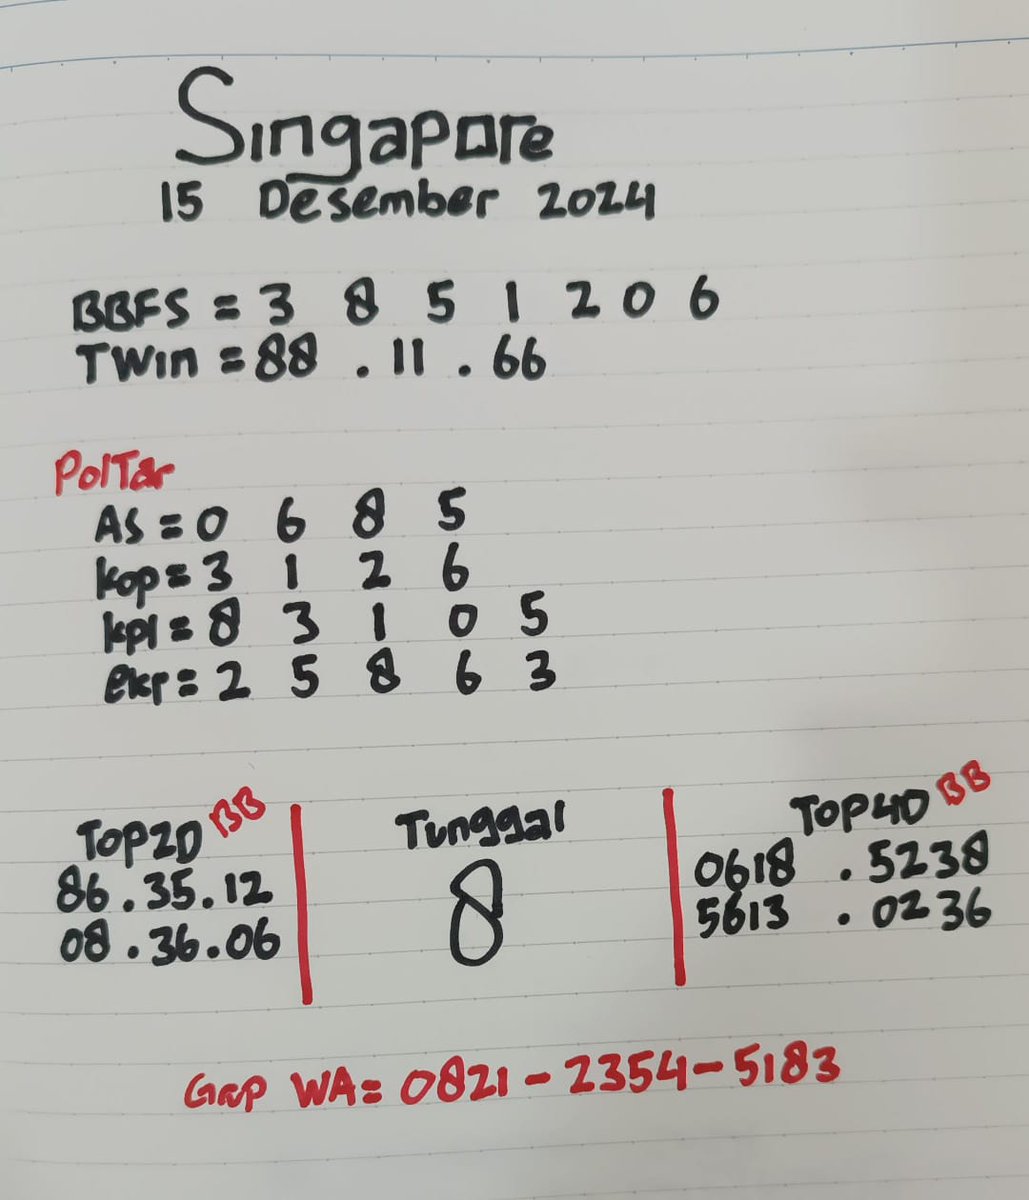 Singapore
15 Desember 2024
BBFS = 3 8 5 1 2 0 6
TWin = 88 . 11 . 66
PolTar
AS = 0 6 8 5
kop = 3 1 2 6
kpl = 8 3 1 0 5
ekr = 2 5 8 6 3
Top2D BB
86 . 35 . 12
08 . 36 . 06
Tunggal
8
Top4D BB
0618 . 5238
5613 . 0236
Grp WA = 0821 - 2354 - 5183